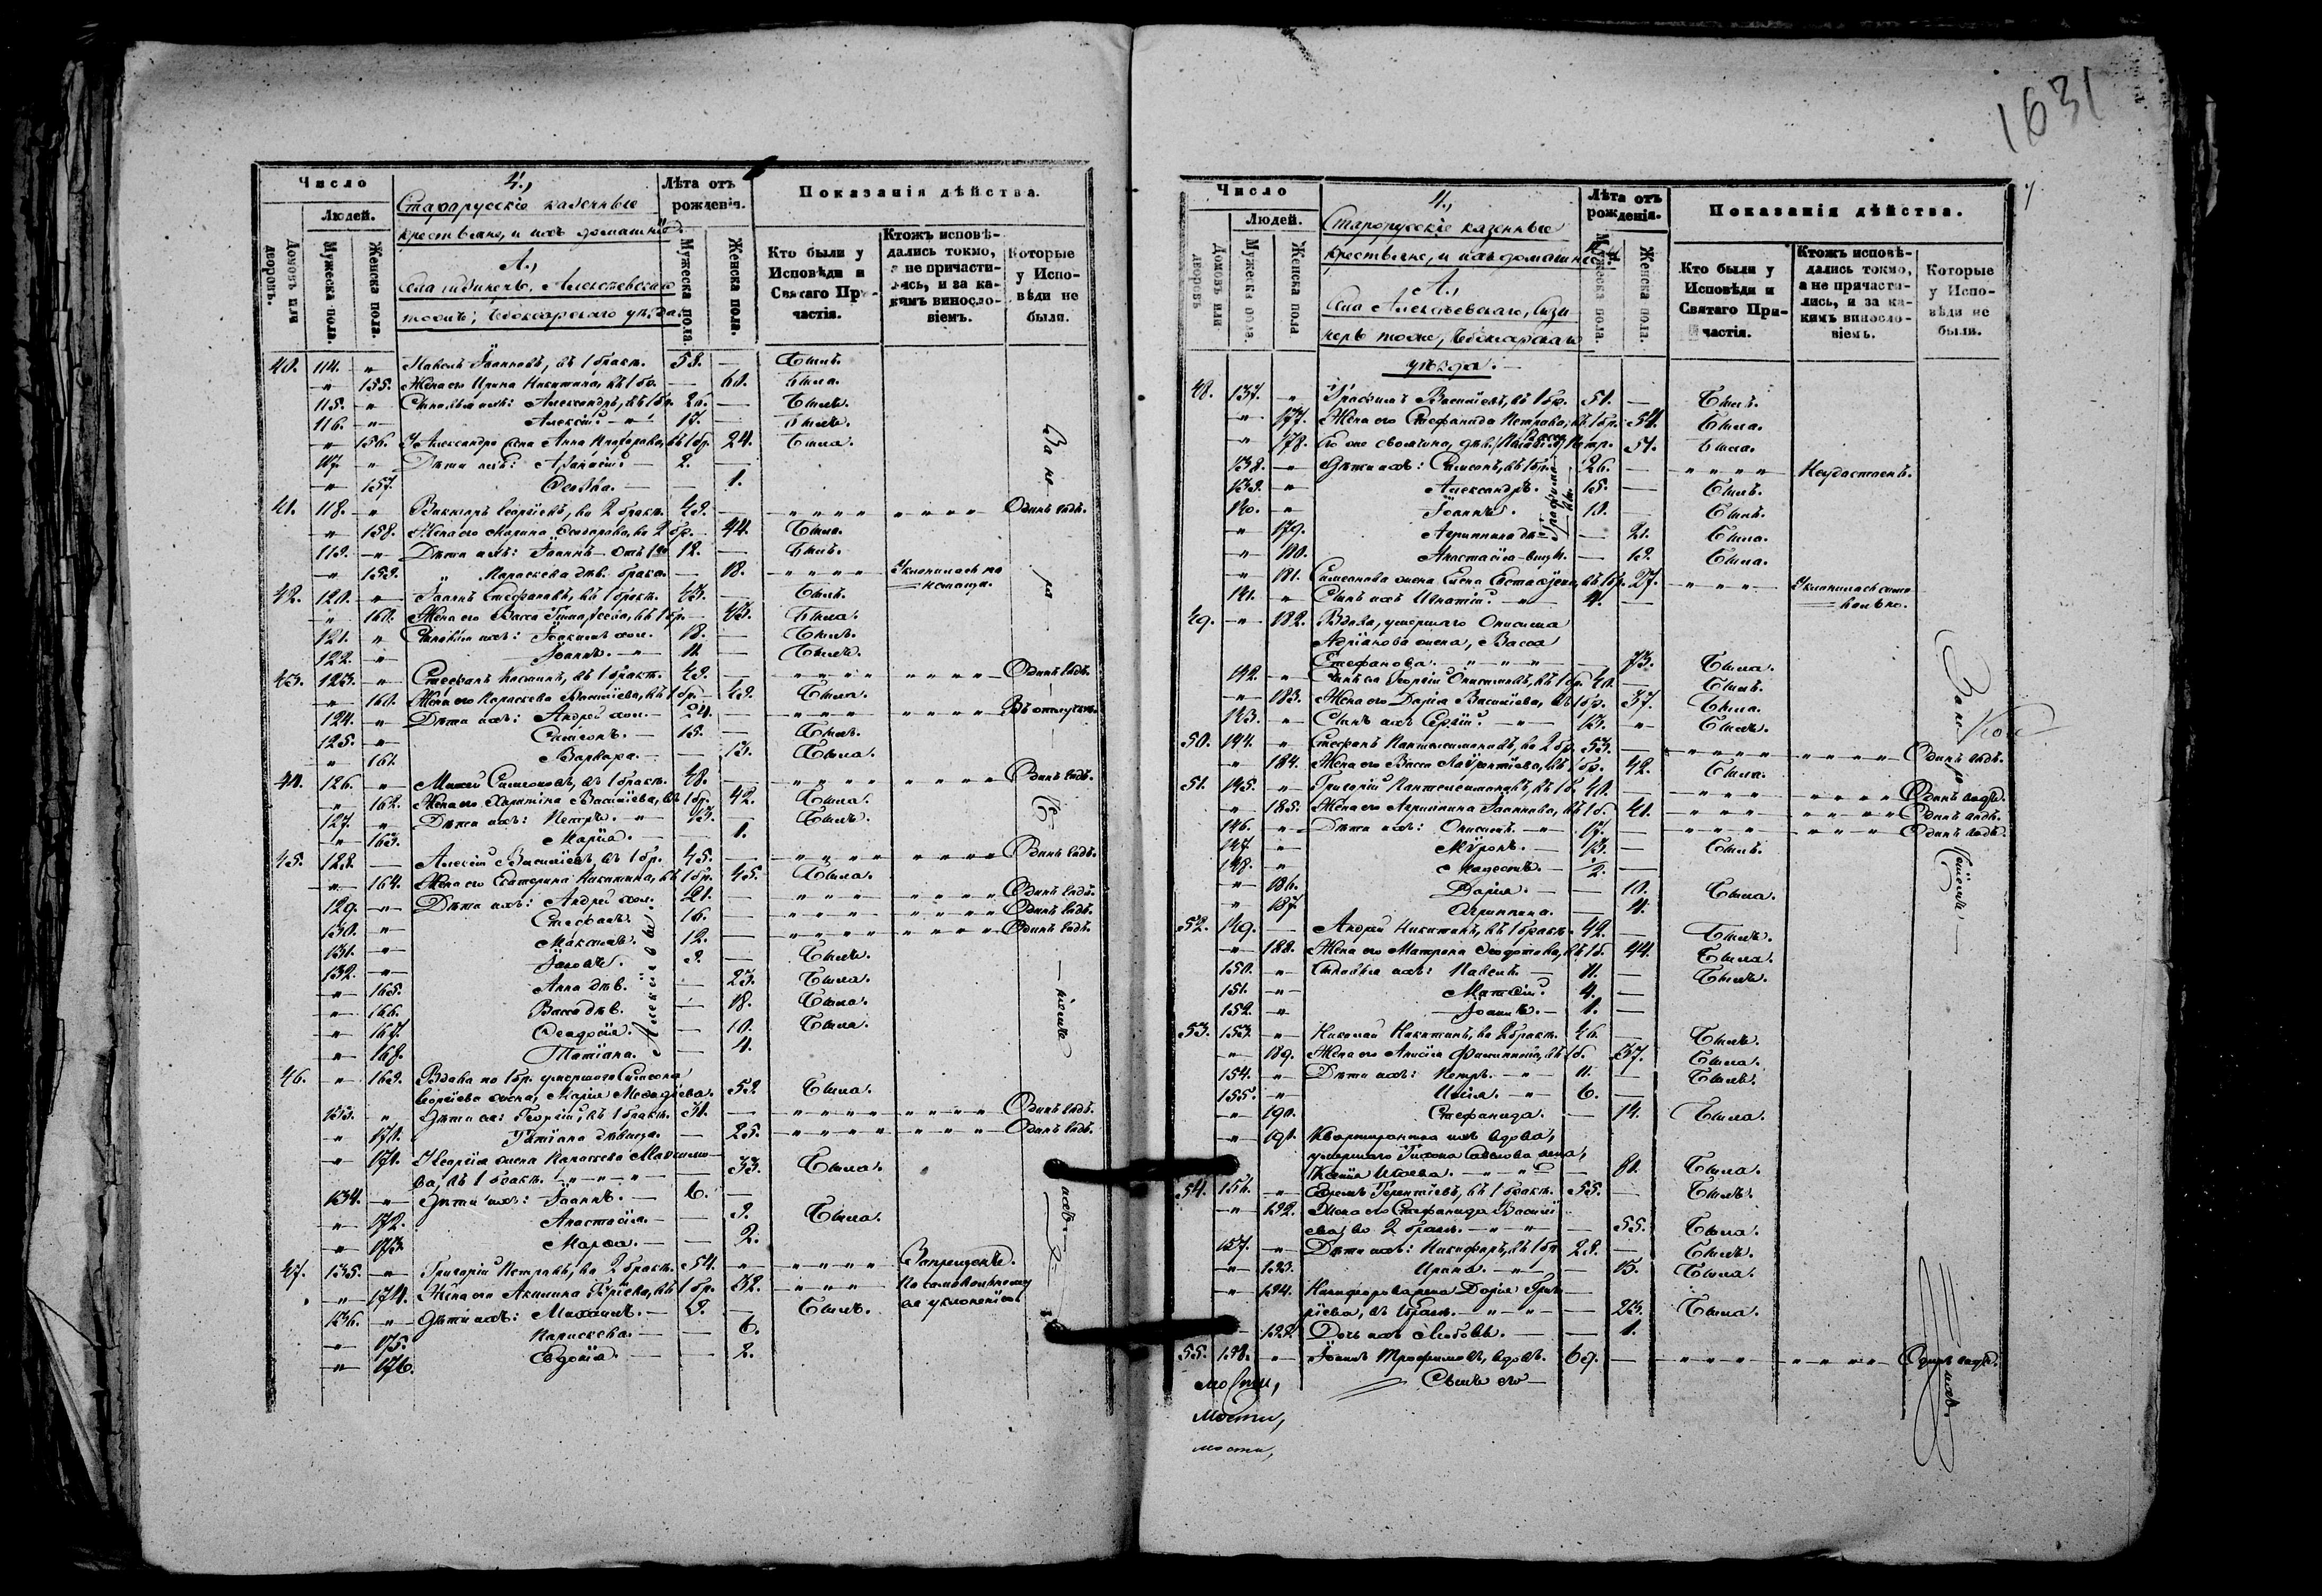 1631
Число
4.,
Лѣта отъ рожденія.
Показанія дѣйства.
Людей.
Домовъ или дворовъ.
Мужеска пола.
Женска пола.
Старорусскіе казенные
крестьяне, и ихъ домашніе.
А.,
Села Сизинеръ, Алексѣевское
тожъ, Чебоксарскаго уѣзда.
Мужеска пола.
Женска пола.
Кто были у Исповѣди и Святаго Причастія.
Ктожъ исповѣдались токмо, а не причастились, и за какимъ винословіемъ.
Которые у Исповѣди не были.
40. 114. " Павелъ Іоанновъ, въ 1 бракѣ. 58. — Былъ.
" 155. Жена его Ирина Никитина, въ 1 бр. — 60. Была.
115. " Сыновья ихъ: Александръ, въ 1 бр. 26. — Былъ.
116. " Алексій. " 17. — Былъ.
" 156. Александра жена Анна въ 1 бр. 24. Была.
117. " Дѣти ихъ: Аѳанасій. — 2. —
" 157. — 1.
41. 118. " Викторъ Георгіевъ, во 2 бракѣ. 49. — " " " " " " " " Одинъ годъ.
" 158. Жена его Марина Ѳеодорова, во 2 бр. 44. Была.
119. " Дѣти ихъ: Іоаннъ — отъ 1го 12. — Былъ.
" 159. Параскева дѣв. брака. — 18. " " " " Уклонилась по
немощи.
42. 120. " Іоаннъ Стефановъ, въ 1 бракѣ. 43. — Былъ.
" 160. Жена его Васса въ 1 бр. — Была.
121. " Сыновья ихъ: Іоакимъ хол. 18. — Былъ.
122. " Іоаннъ. " 11. — Былъ.
43. 123. " Стефанъ въ 1 бракѣ. 49. — " " " " " " " " Одинъ годъ.
" 160. Жена его Параскева Василіева, въ 1 бр. 49. Была.
124. " Дѣти ихъ: Андрей хол. 24. — " " " " " " " " Въ отлучкѣ.
125. " Симеонъ. — 15. — Былъ.
" 161. Варвара. — 13. Была.
44. 126. " Симеоновъ, въ 1 бракѣ. 48. — " " " " " " " " Одинъ годъ.
" 162. Жена его Харитина Василіева, въ 1 бр. 42. Была.
127. " Дѣти ихъ: Петръ. " 13. — Былъ.
" 163. Марія. — 1.
45. 128. — Алексій Василіевъ, въ 1 бр. 45. — " " " " " " " " Одинъ годъ.
" 164. Жена его Екатерина Никитина, въ 1 бр. 45. Была.
129. " Дѣти ихъ: Андрей хол. 21. — " " " " " " " " Одинъ годъ.
130. " Стефанъ. 16. — " " " " " " " " Одинъ годъ.
131. " Максимъ. 12. — " " " " " " " " Одинъ годъ.
132. " Іаковъ. 9. — Былъ.
" 165. Анна дѣв. — 23. Была.
" 166. Васса дѣв. — 18. Была.
" 167. Ѳеодосія. — 10. Была.
" 168. Татіана. — 4.
Алексіевы.
46. " 169. Вдова по 1 бр. умершаго Симеона
Георгіева жена, Марія 59. Была.
133. " Дѣти ея: Георгій, въ 1 бракѣ. 31. — " " " " " " " " Одинъ годъ.
" 170. Татіана дѣвица. — 25. " " " " " " " " Одинъ годъ.
" 171. Георгія жена Параскева Максимо-
ва, въ 1 бракѣ. " " " — 33. Была.
134. " Дѣти ихъ: Іоаннъ. — 6. —
" 172. Анастасія. — 9. Была.
" 173. Марѳа. — 2.
47. 135. " Григорій Петровъ, во 2 бракѣ. 54. " " " " " Запрещенъ.
" 174. Жена его Акилина въ 1 бр. 32. " " " По самовольному
136. " Дѣти ихъ: Михаилъ. — 9. — Былъ. ея уклоненію.
" 175. Параскева. — 6.
" 176. Евдокія. — 2.
За не
ихъ
Число
4.,
Лѣта отъ рожденія.
Показанія дѣйства.
Людей.
Домовъ или дворовъ
Мужеска пола.
Женска пола
Старорусскіе казенные
крестьяне, и ихъ домашніе.
А.,
Села Алексѣевскаго, Сизи-
неръ тоже, Чебоксарскаго
уѣзда. —
Мужеска пола.
Женска пола.
Кто были у Исповѣди и Святаго Причастія.
Ктожъ исповѣдались токмо, а не причастились, и за какимъ винословіемъ.
Которые у Исповѣди не были.
48. 137. " Василіевъ, въ 1 бр. 51. — Былъ.
" 177. Жена его Стефанида Петрова, въ 1 бр. 54. Была.
" 178. Его же дѣв. Петр. 51. Была.
138. " Дѣти ихъ: Симеонъ, въ 1 бр. 26. — " " " " Неудостоенъ.
139. " Александръ. 15. — Былъ.
140. " Іоаннъ. 13. — Былъ.
" 179. Агриппина дѣв. — 21. Была.
" 180. Анастасія — 12. Была.
" 181. Симеонова жена Елена Евстафіева, въ 1 бр. 27. " " " Уклонилась само-
141. " Сынъ ихъ Игнатій. " 4. — вольно.
49. " 182. Вдова, умершаго Онисима
Адріанова жена, Васса
Стефанова. " " " — 73. Была.
142. " Сынъ ея Георгій Онисимовъ, въ 1 бр. 40. — Былъ.
" 183. Жена его Дарія Василіева, въ 1 бр. 37. Была.
143. " Сынъ ихъ Сергій. " 13. " Былъ.
50. 144. " Стефанъ Пантелеимоновъ, во 2 бр. 53. — " " " " " " " " Одинъ годъ.
" 184. Жена его Васса Лаврентіева, въ 1 бр. 42. Была.
51. 145. " Григорій Пантелеимоновъ, въ 1 б. 40. — " " " " " " " Одинъ годъ.
" 185. Жена его Агриппина Іоаннова, въ 1 б. 41. " " " " " " " Одинъ годъ.
146. " Дѣти ихъ: Онисимъ. " 17. — " " " " " " " Одинъ годъ.
147. " Миронъ. — 13. — Былъ.
148. " Модестъ. — 2. —
" 186. Дарія. — 10. Была.
" 187. Агриппина. — 4.
52. 149. — Андрей Никитинъ, въ 1 бракѣ. 42. — Былъ.
" 188. Жена его Матрона въ 1 б. 44. Была.
150. " Сыновья ихъ: Павелъ. — 11. — Былъ.
151. " Матѳій. 4. —
152. " Іоаннъ. — 1. —
53. 153. " Николай Никитинъ, во 2 бракѣ. 46. — Былъ.
" 189. Жена его Анисія Филиппова, въ 1 б. 37. Была.
154. " Дѣти ихъ: Петръ. " 11. — Былъ.
155. " Илія. " 6. —
" 190. Стефанида. — 14. Была.
" 191. Квартирантка ихъ вдова,
умершаго Тихона жена,
Ксенія " " — 80. Была.
54. 156. " Ефремъ Терентіевъ, въ 1 бракѣ. 55. — Былъ.
" 192. Жена его Стефанида Василі-
ева, во 2 бракѣ. " " — 55. Была.
157. " Дѣти ихъ: Никифоръ, въ 1 бр. 28. — Былъ.
" 193. Ирина. " — 15. Была.
" 194. Никифорова жена Дарія Григо-
ріева, въ 1 бракѣ. " " — 23. Была.
— 199. Дочь ихъ Любовь. — 1.
55. 158. " Іоаннъ Трофимовъ, вдовъ. 69. — " " " " " " " " Одинъ годъ.
Сынъ его —
мости,
мости,
За не
ихъ.